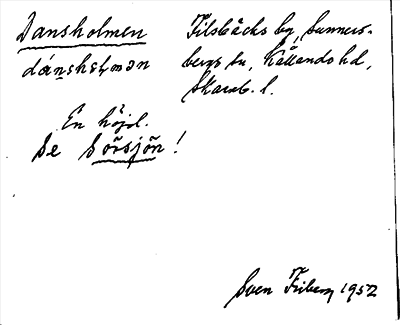 Dansholmen
dánsholmən
Filsbäcks by, Sunners-
bergs sn, Kållands hd,
Skarab. l.
En höjd.
Se Sörsjön!
Sven Friberg 1952